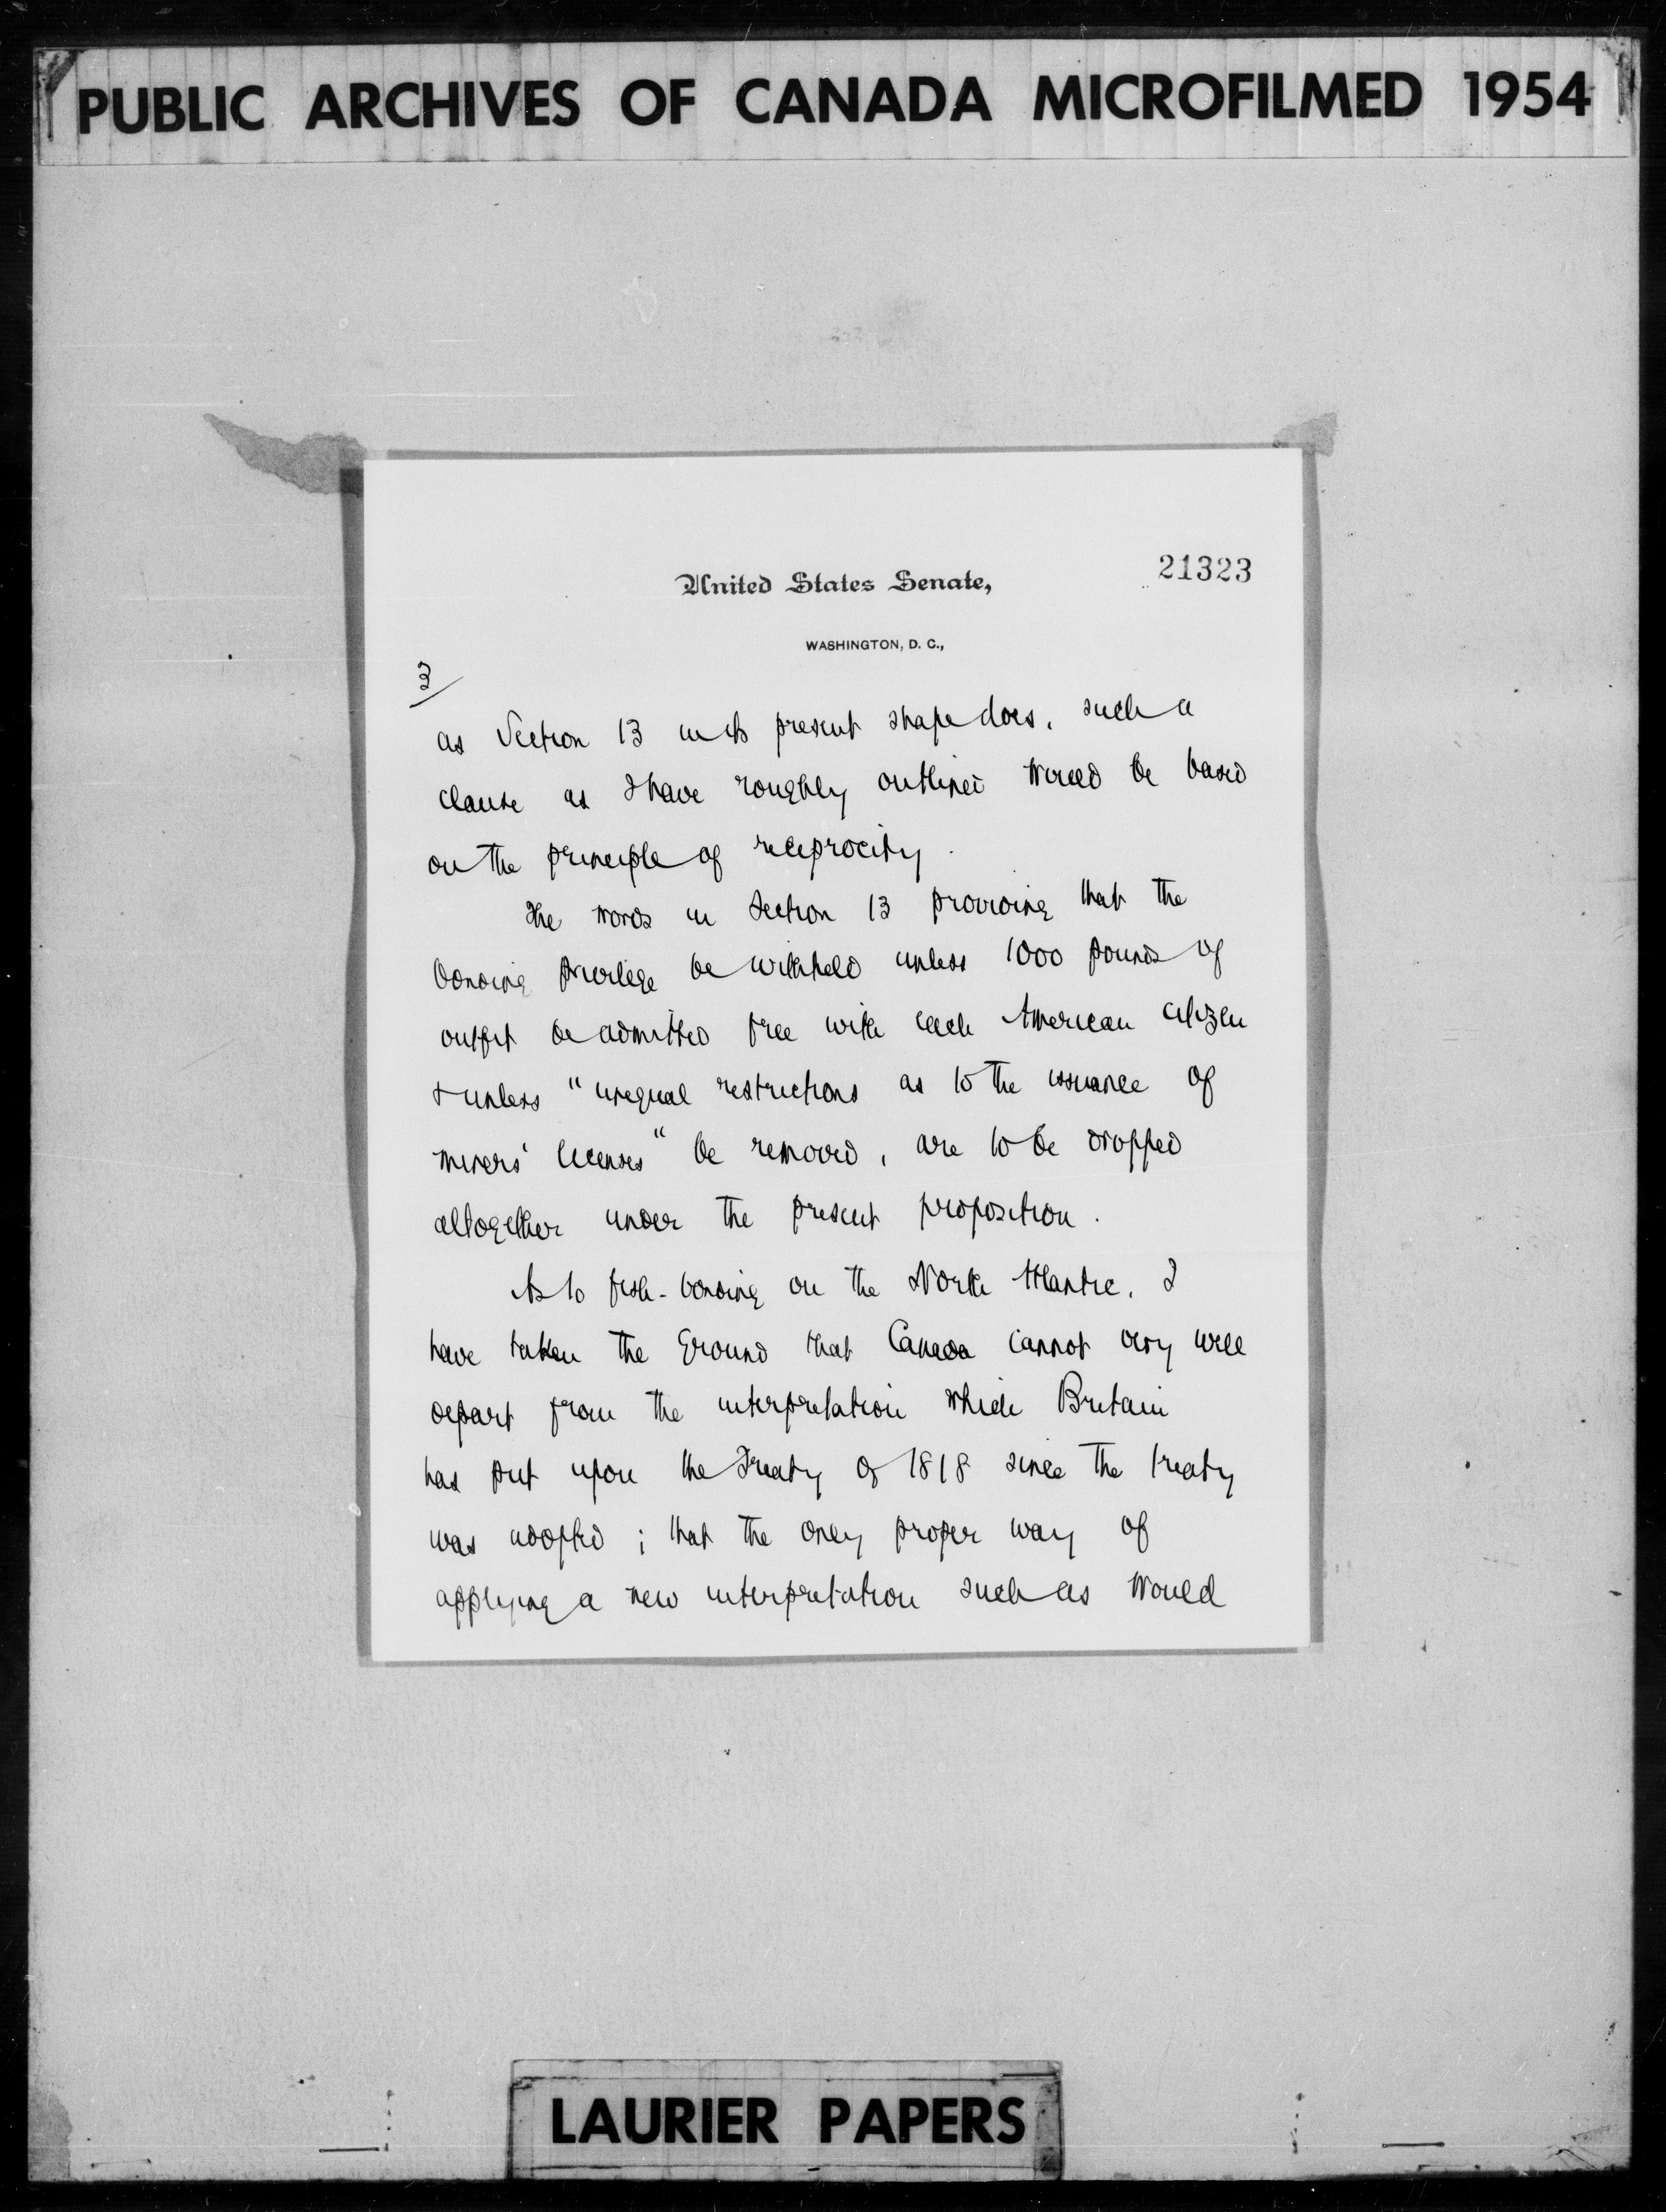 PUBLIC ARCHIVES OF CANADA MICROFILMED 1954
21323
United States Senate,
WASHINGTON, D. C.,
3/
as Section 13 in its present shape does, such a
clause as I have roughly outlined would be based
on the principle of reciprocity.
The words in Section 13 providing that the
bonding privilege be withheld unless 1000 pounds of
outfit be admitted free with each American citizen
& unless "unequal restrictions as to the issuance of
miners' licenses" be removed, are to be dropped
altogether under the present proposition.
As to fish-bonding on the North Atlantic, I
have taken the ground that Canada cannot very well
depart from the interpretation which Britain
has put upon the Treaty of 1818 since the treaty
was adopted; that the only proper way of
applying a new interpretation such as would
LAURIER PAPERS